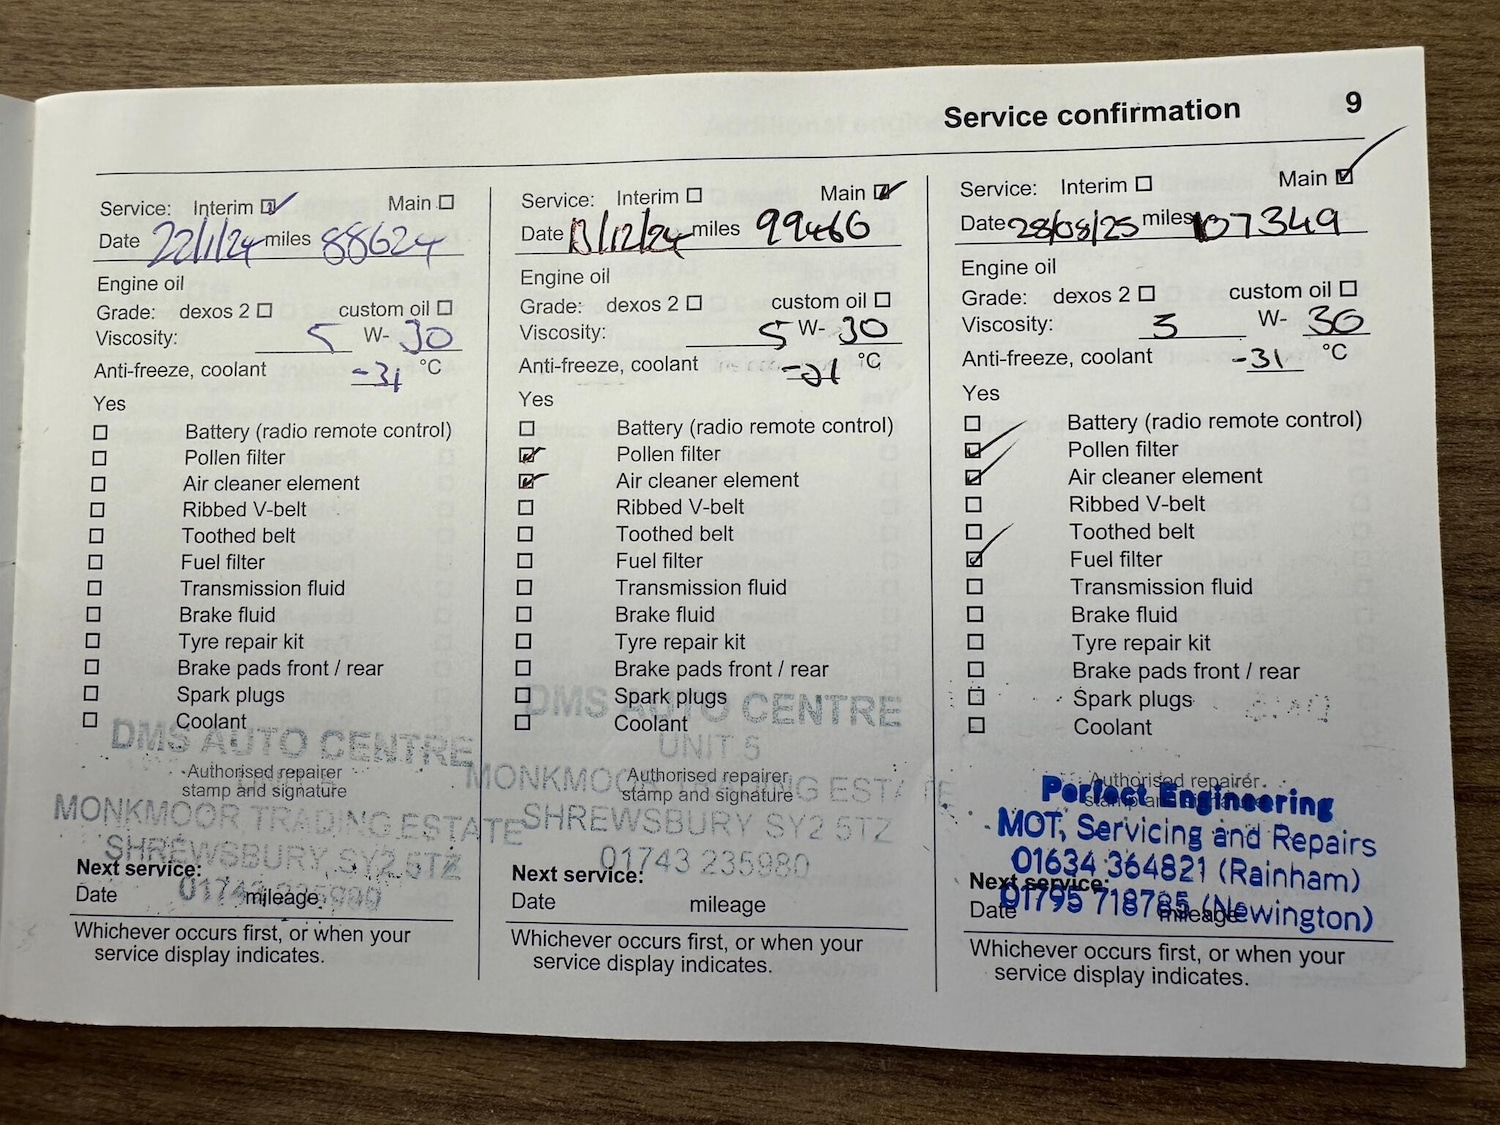 Service confirmation 9
Service: Interim Main
Date 22/1/24 miles 88624
Engine oil
Grade: dexos 2 custom oil
Viscosity: 5 W- 30
Anti-freeze, coolant -31 °C
Yes
Battery (radio remote control)
Pollen filter
Air cleaner element
Ribbed V-belt
Toothed belt
Fuel filter
Transmission fluid
Brake fluid
Tyre repair kit
Brake pads front / rear
Spark plugs
Coolant
DMS AUTO CENTRE
Authorised repairer
stamp and signature
MONKMOOR TRADING ESTATE
SHREWSBURY SY2 5TZ
Next service:
01743 235980
Date mileage
Whichever occurs first, or when your
service display indicates.
Service: Interim Main
Date /12/24 miles 99466
Engine oil
Grade: dexos 2 custom oil
Viscosity: 5 W- 30
Anti-freeze, coolant °C
Yes
Battery (radio remote control)
Pollen filter
Air cleaner element
Ribbed V-belt
Toothed belt
Fuel filter
Transmission fluid
Brake fluid
Tyre repair kit
Brake pads front / rear
Spark plugs
DMS AUTO CENTRE
Coolant
UNIT 5
Authorised repairer
MONKMOOR TRADING ESTATE
stamp and signature
SHREWSBURY SY2 5TZ
01743 235980
Next service:
Date mileage
Whichever occurs first, or when your
service display indicates.
Service: Interim Main
Date 28/08/25 miles 107349
Engine oil
Grade: dexos 2 custom oil
Viscosity: 5 W- 30
Anti-freeze, coolant -31 °C
Yes
Battery (radio remote control)
Pollen filter
Air cleaner element
Ribbed V-belt
Toothed belt
Fuel filter
Transmission fluid
Brake fluid
Tyre repair kit
Brake pads front / rear
Spark plugs
Coolant
Authorised repairer
Perfect Engineering
stamp and signature
MOT, Servicing and Repairs
01634 364821 (Rainham)
Next service:
01795 718785 (Newington)
Date mileage
Whichever occurs first, or when your
service display indicates.